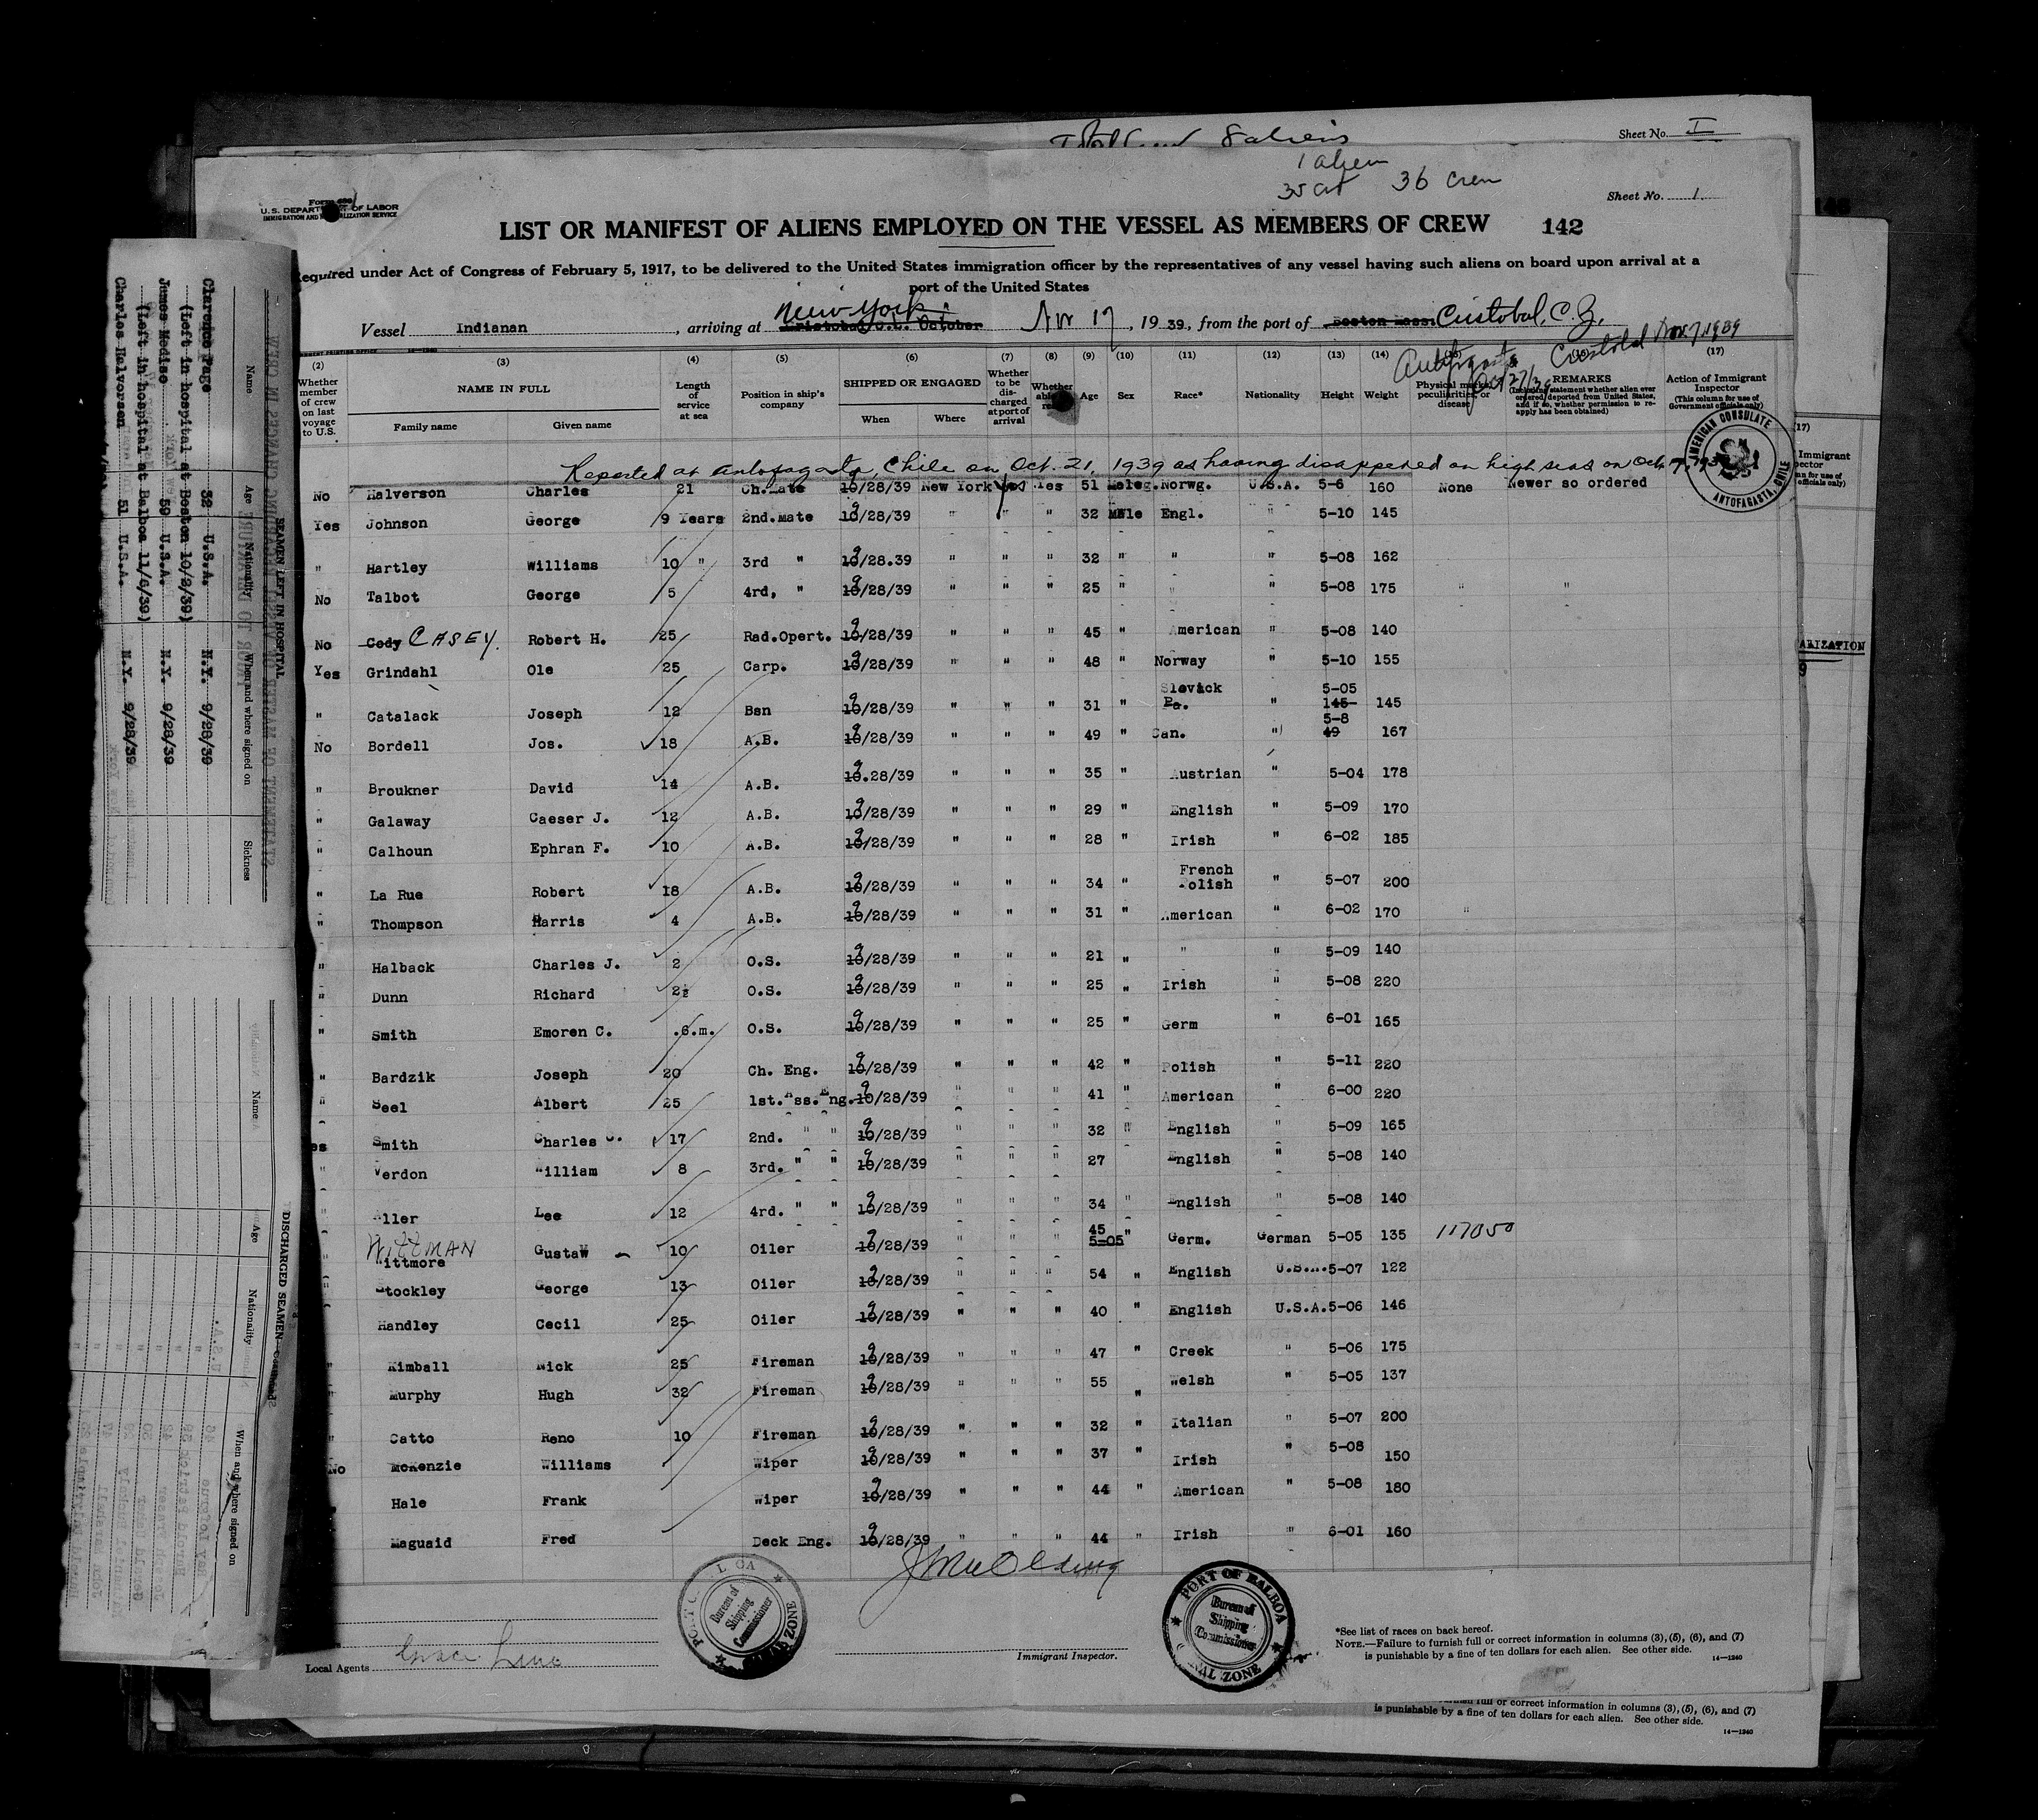 Sheet No. I
8 aliens
1 alien
35 cit 36 Crew
Sheet No. 1.
U.S. DEPARTMENT OF LABOR
IMMIGRATION AND NATURALIZATION SERVICE
LIST OR MANIFEST OF ALIENS EMPLOYED ON THE VESSEL AS MEMBERS OF CREW 142
Required under Act of Congress of February 5, 1917, to be delivered to the United States immigration officer by the representatives of any vessel having such aliens on board upon arrival at a
port of the United States
New York
Vessel Indianan , arriving at Cristobal C.Z. October Nov 17 , 1939, from the port of Boston Mass. Cristobal, C. Z.
Antofagasta Oct 27/39 Cristobal Nov 7, 1939
(2) (3) (4) (5) (6) (7) (8) (9) (10) (11) (12) (13) (14) (17)
Whether member of crew on last voyage to U.S. NAME IN FULL Family name Given name Length of service at sea Position in ship's company SHIPPED OR ENGAGED When Where Whether to be discharged at port of arrival Whether able to read Age Sex Race* Nationality Height Weight Physical marks, peculiarities, or disease REMARKS (Including statement whether alien ever ordered deported from United States, and if so, whether permission to reapply has been obtained) Action of Immigrant Inspector (This column for use of Government officials only)
Reported at Antofagasta, Chile on Oct. 21, 1939 as having disappeared on high seas on Oct. 7, 1939
AMERICAN CONSULATE ANTOFAGASTA, CHILE
No Halverson Charles 21 Ch.Mate 10/28/39 New York Yes Yes 51 Male Norwg. U.S.A. 5-6 160 None Newer so ordered
Yes Johnson George 9 Years 2nd.Mate 10/28/39 9 " " " 32 Male Engl. " 5-10 145
" Hartley Williams 10 " 3rd " 10/28.39 9 " " " 32 " " " 5-08 162
No Talbot George 5 4rd, " 10/28/39 9 " " " 25 " " " 5-08 175 " "
No Cody CASEY. Robert H. 25 Rad.Opert. 10/28/39 9 " " " 45 " American " 5-08 140
Yes Grindahl Ole 25 Carp. 10/28/39 9 " " " 48 " Norway " 5-10 155
" Catalack Joseph 12 Bsn 10/28/39 9 " " " 31 " Slovack Pa. " 5-05 145 145
No Bordell Jos. 18 A.B. 10/28/39 9 " " " 49 " Can. " 5-8 49 167
" Broukner David 14 A.B. 10.28/39 9 " " " 35 " Austrian " 5-04 178
" Galaway Caeser J. 12 A.B. 10/28/39 9 " " " 29 " English " 5-09 170
" Calhoun Ephran F. 10 A.B. 10/28/39 9 " " " 28 " Irish " 6-02 185
" La Rue Robert 18 A.B. 10/28/39 9 " " " 34 " French Polish " 5-07 200
" Thompson Harris 4 A.B. 10/28/39 9 " " " 31 " American " 6-02 170 "
" Halback Charles J. 2 O.S. 10/28/39 9 " " " 21 " " " 5-09 140
" Dunn Richard 2½ O.S. 10/28/39 9 " " " 25 " Irish " 5-08 220
" Smith Emoren C. .6.m. O.S. 10/28/39 9 " " " 25 " Germ " 6-01 165
" Bardzik Joseph 20 Ch. Eng. 10/28/39 9 " " " 42 " Polish " 5-11 220
" Seel Albert 25 1st.Ass.Eng. 10/28/39 9 " " " 41 " American " 6-00 220
es Smith Charles 17 2nd. " " 10/28/39 9 " " " 32 " English " 5-09 165
" Verdon William 8 3rd. " " 10/28/39 9 " " " 27 English " 5-08 140
" Aller Lee 12 4rd. " " 10/28/39 9 " " " 34 " English " 5-08 140
" WITTMAN Wittmore Gustaw 10 Oiler 10/28/39 9 " " " 45 5-05 " Germ. German 5-05 135 117050
" Stockley George 13 Oiler 10/28/39 9 " " " 54 " English U.S.A. 5-07 122
Handley Cecil 25 Oiler 10/28/39 9 " " " 40 " English U.S.A. 5-06 146
" Kimball Nick 25 Fireman 10/28/39 9 " " " 47 " Creek " 5-06 175
" Murphy Hugh 32 Fireman 10/28/39 9 " " " 55 " Welsh " 5-05 137
" Catto Reno 10 Fireman 10/28/39 9 " " " 32 " Italian " 5-07 200
No McKenzie Williams Wiper 10/28/39 9 " " " 37 " Irish " 5-08 150
Hale Frank Wiper 10/28/39 9 " " " 44 " American " 5-08 180
Maguaid Fred Deck Eng. 10/28/39 9 " " " 44 " Irish " 6-01 160
Bureau of Shipping Commissioner CANAL ZONE
PORT OF BALBOA Bureau of Shipping Commissioner CANAL ZONE
Local Agents Grace Line
Immigrant Inspector.
*See list of races on back hereof.
NOTE.—Failure to furnish full or correct information in columns (3), (5), (6), and (7)
is punishable by a fine of ten dollars for each alien. See other side.
14—1240
full or correct information in columns (3), (5), (6), and (7)
is punishable by a fine of ten dollars for each alien. See other side.
14—1240
SEAMEN LEFT IN HOSPITAL
Name Age Nationality When and where signed on Sickness
Clarence Page 32 U.S.A. N.Y. 9/28/39
(Left in hospital at Boston 10/2/39)
James Mediso 59 U.S.A. N.Y. 9/28/39
(Left in hospital at Balboa 11/6/39)
Charles Halvorsen 51 U.S.A. N.Y. 9/28/39
DISCHARGED SEAMEN
Name Age Nationality When and where signed on